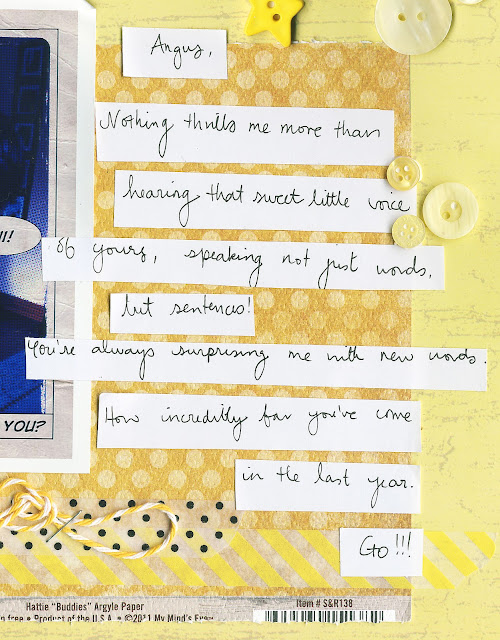 Angus,
Nothing thrills me more than
hearing that sweet little voice
of yours, speaking not just words,
but sentences!
You're always surprising me with new words.
How incredibly far you've come
YOU?
in the last year.
Go!!!
Hattie "Buddies" Argyle Paper Item # S&R138
free • Product of the U.S.A. • ©2011 My Mind's